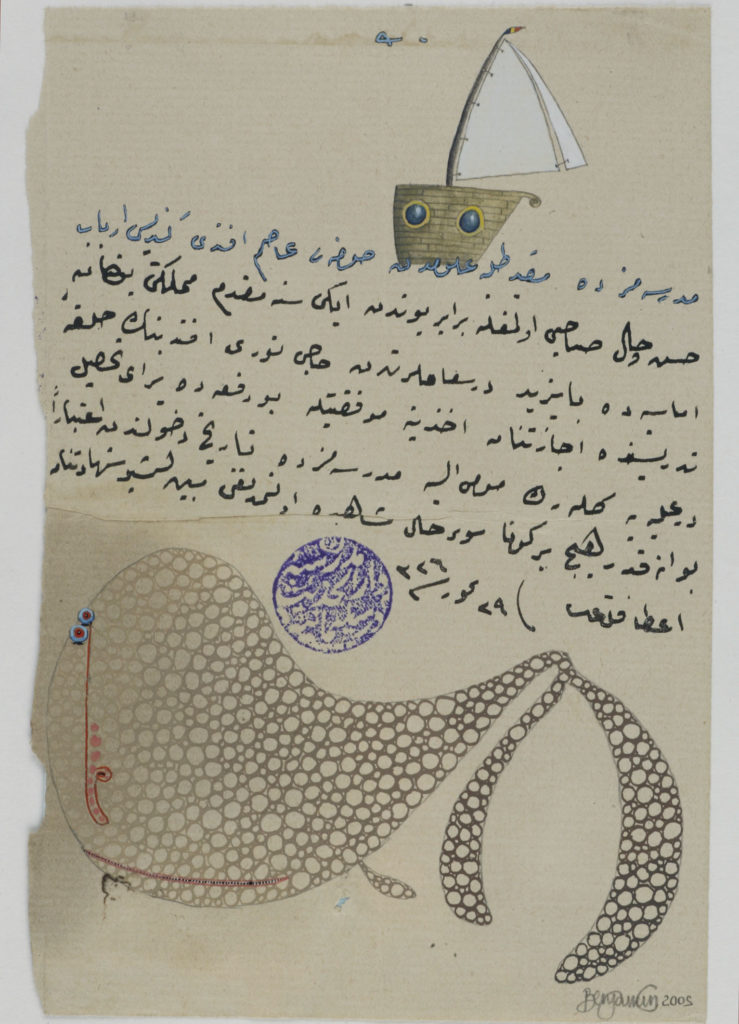 مدرسه مزده مقید طلبه علومدن عاصم افندی کندیسی ارباب
حسن حال صاحبی اولمغله برابر بوندن ایکی سنه مقدم مملکتی بولنان
اماسیه ده بایزید درسعاملرندن حاجی نوری افندینك حلقهٔ
تدریسنده اجازتنامه اخذینه موفقیتله بو دفعه ده برای تحصیل
درعلیه یه کله رك مومی الیه مدرسه مزده تاریخ دخولندن اعتباراً
بو انه قدر هیچ بر کونا سوء حال مشاهده اولنمدیغنی مبین اشبو شهادتنامه
اعطا قلندی ٢٩ تموز سنه ٣٢٦
Benjamin 2005